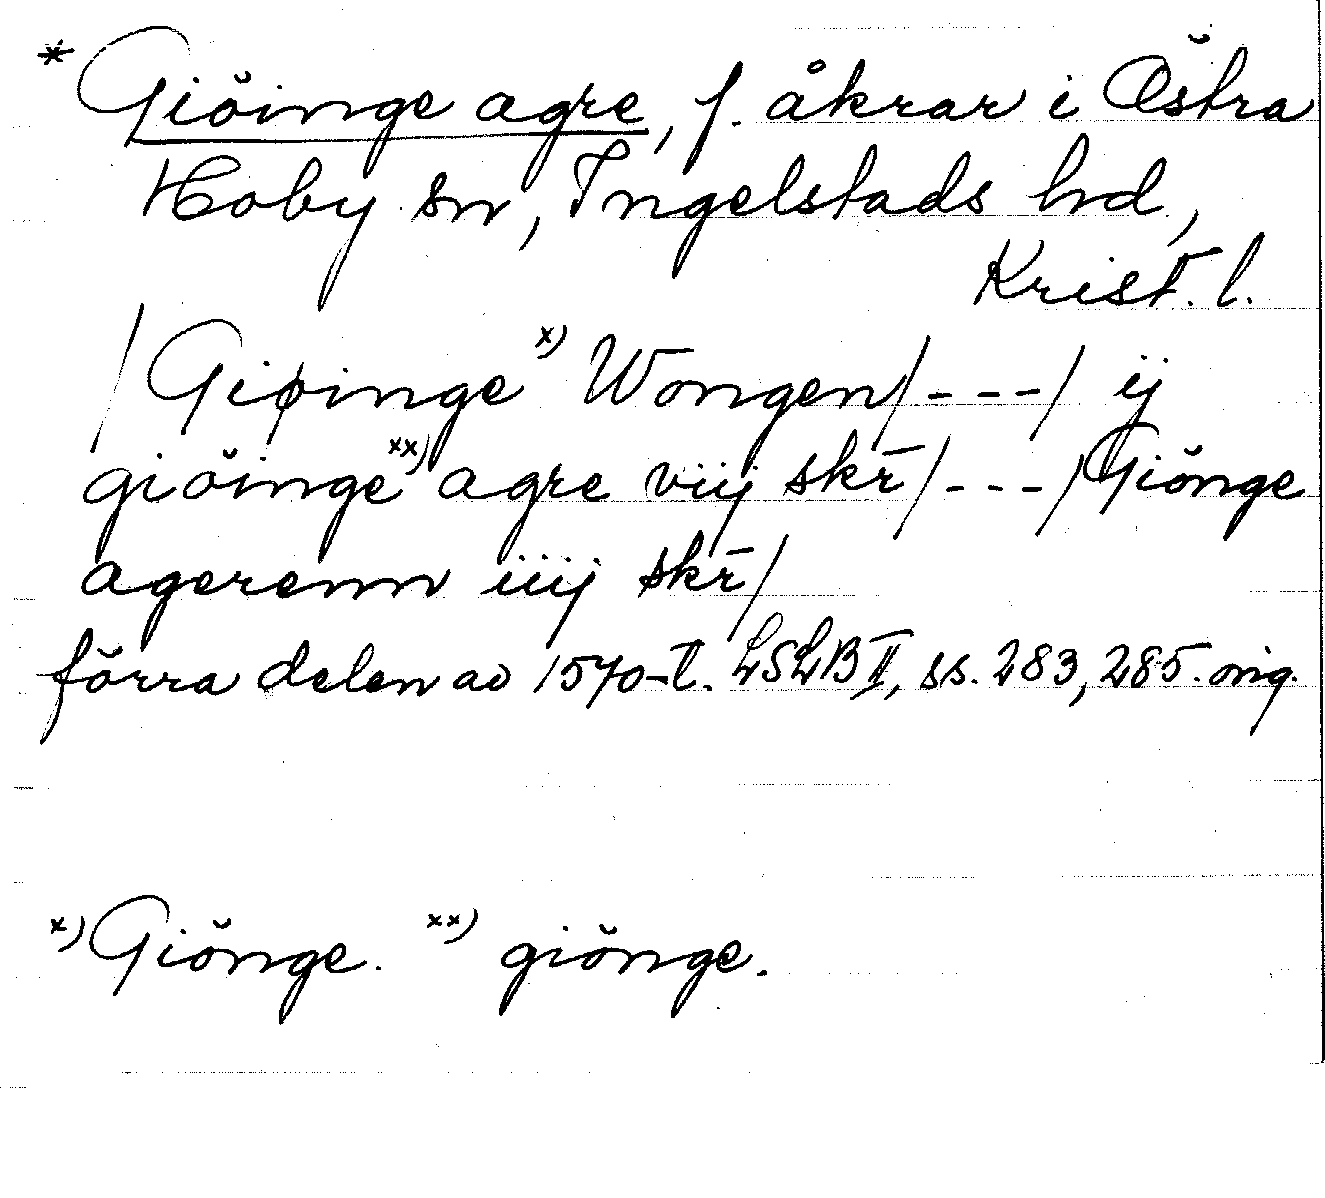 * Giöinge agre, f. åkrar i Östra
Hoby sn, Ingelstads hd,
Krist. l.
/ Giøinge x) Wongen / - - - / ij
giöinge xx) agre viij skr̄ / - - - / Giönge
agerenn iiij skr̄ /
förra delen av 1570-t. LSLB II, ss. 283, 285. orig.
x) Giönge. xx) giönge.